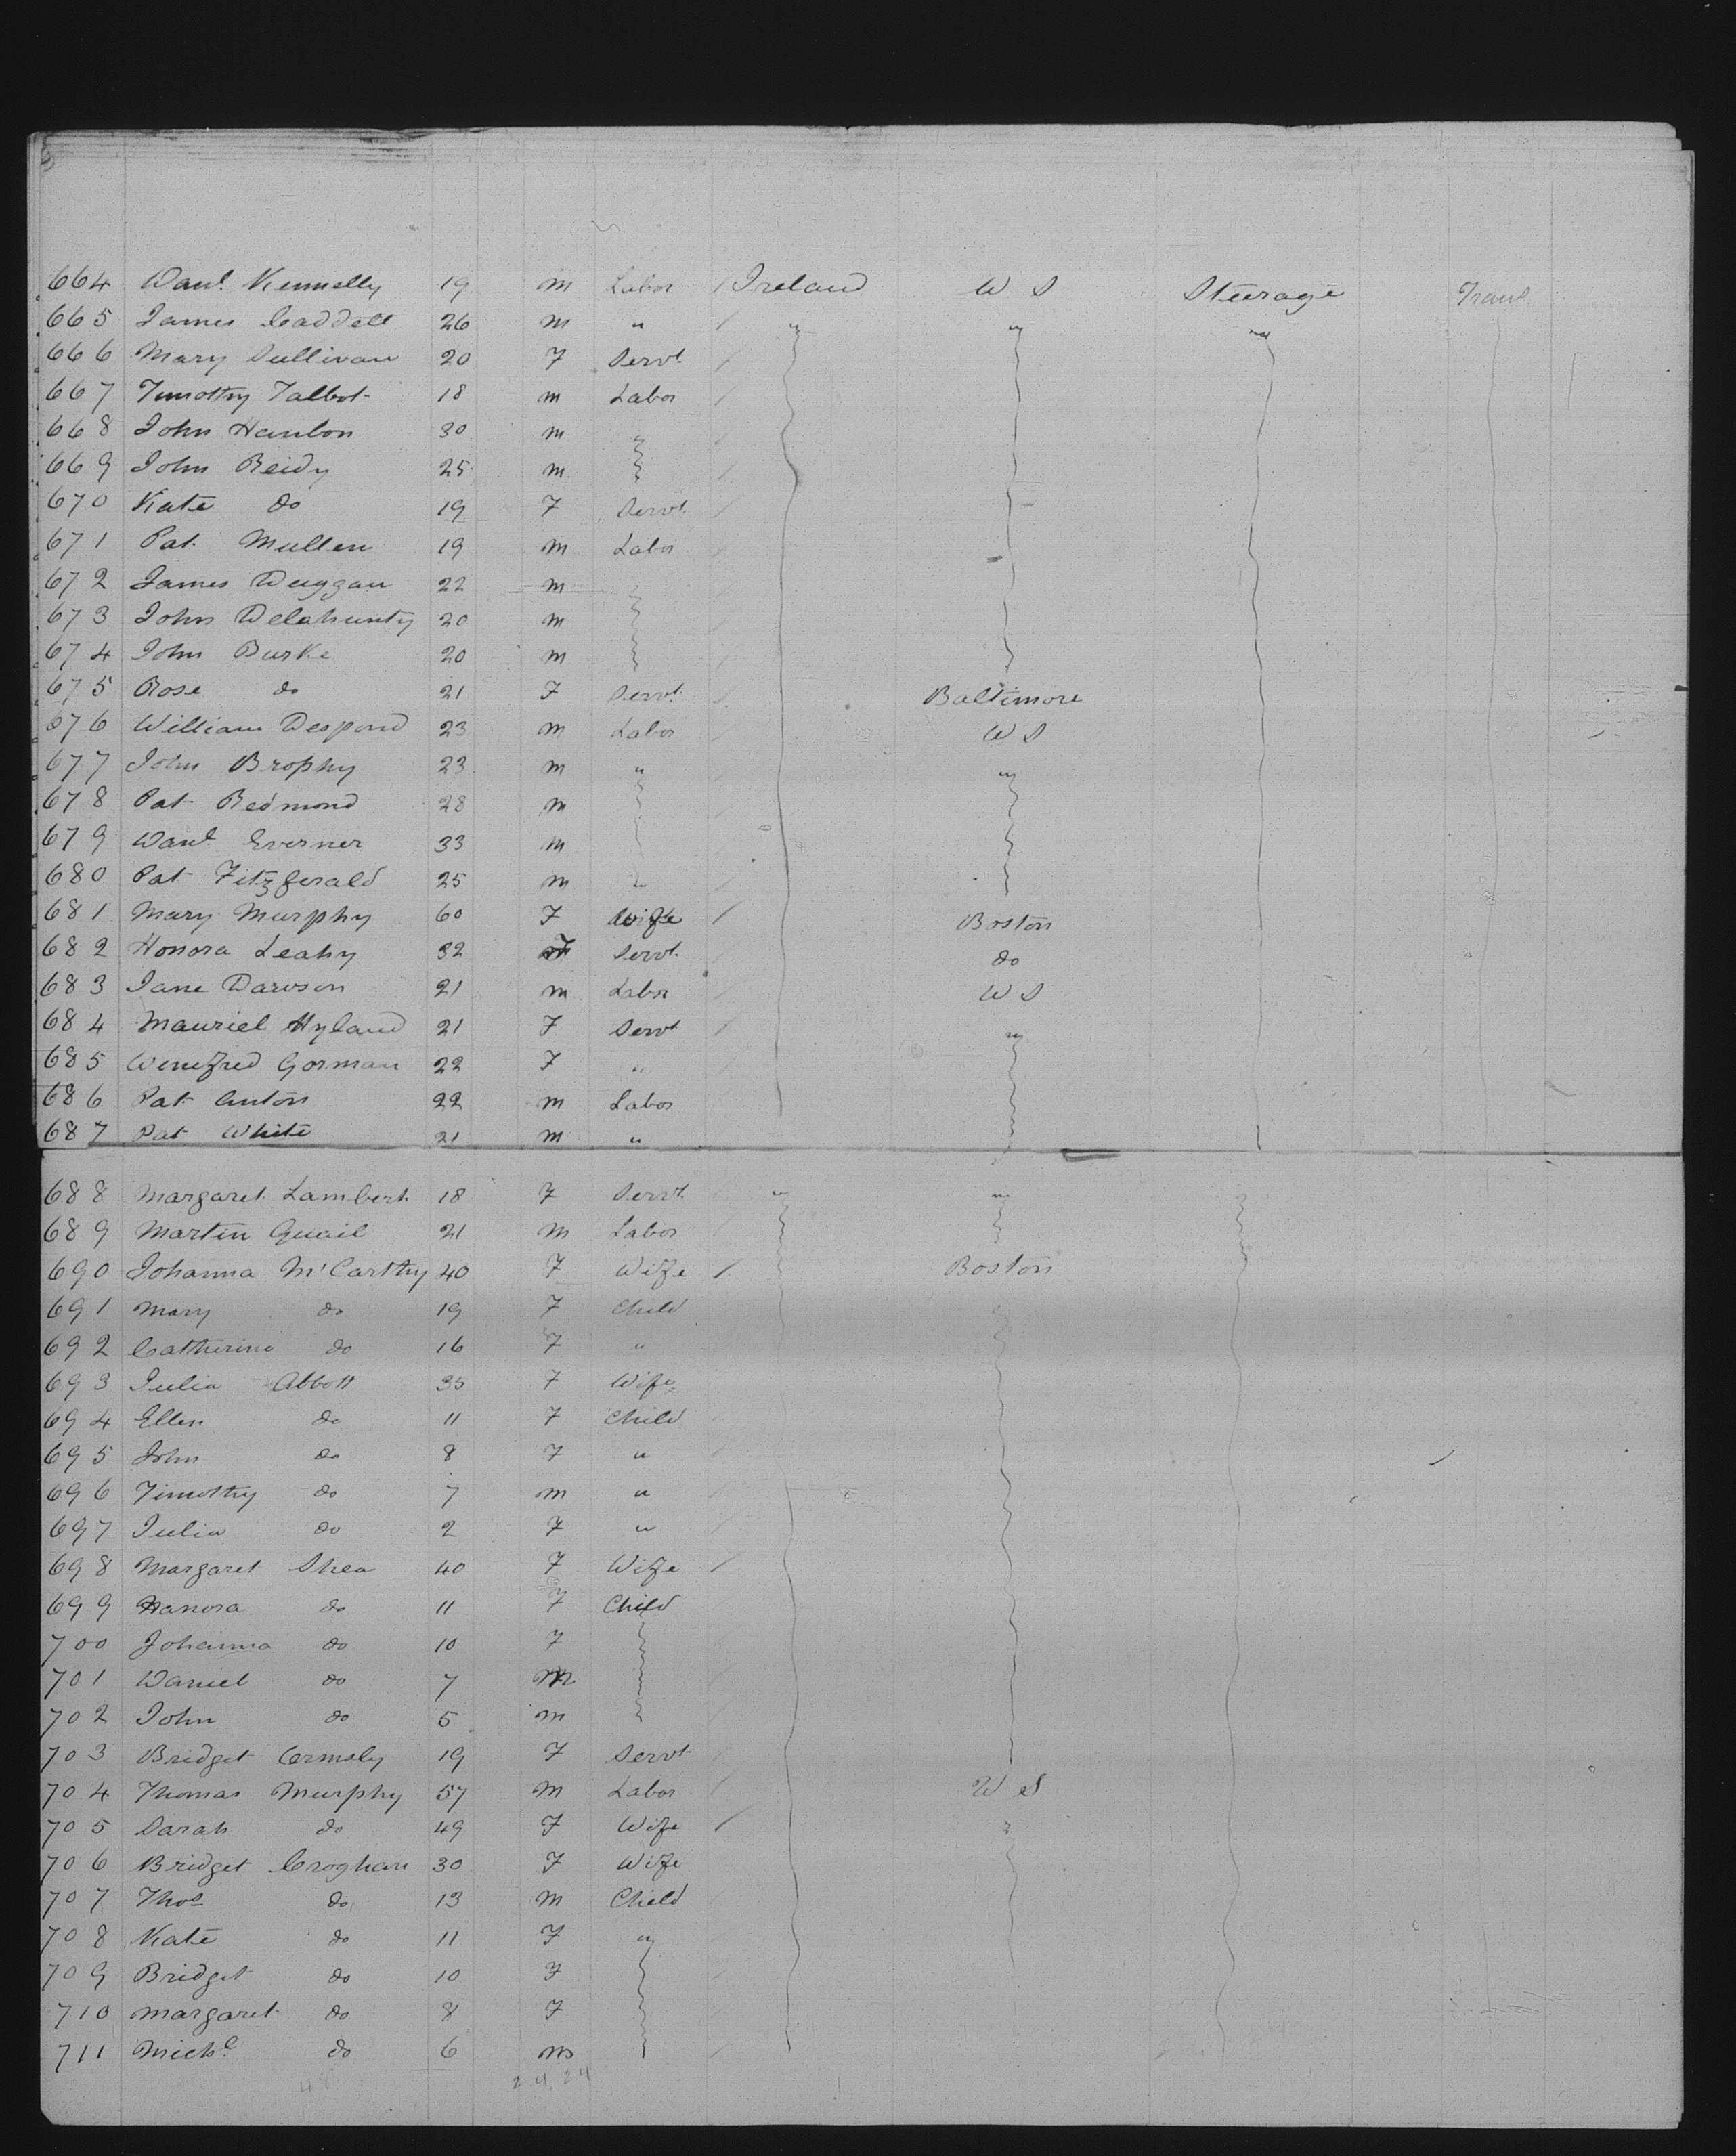 664 Danl. Kennelly 19 m Labor Ireland W S Steerage
665 James Caddell 26 m " " " "
666 Mary Sullivan 20 F Servt.
667 Timothy Talbot 18 m Labor
668 John Hanlon 30 m "
669 John Reidy 25 m
670 Kate do 19 F Servt.
671 Pat. Mullen 19 m Labor
672 James Duggan 22 m
673 John Delahunty 20 m
674 John Burke 20 m
675 Rose do 21 F Servt. Baltimore
676 William Despond 23 m Labor W S
677 John Brophy 23 m " "
678 Pat Redmond 28 m
679 Danl. Everner 33 m
680 Pat Fitzgerald 25 m
681 Mary Murphy 60 F Wife Boston
682 Honora Leahy 32 F Servt. do
683 Jane Dawson 21 m Labor W S
684 Mauriel Hyland 21 F Servt "
685 Winefred Gorman 22 F "
686 Pat 22 m Labor
687 Pat White 21 m "
688 Margaret Lambert 18 F Servt. " "
689 Martin Quail 21 m Labor
690 Johanna McCarthy 40 F Wife Boston
691 Mary do 19 F Child
692 Catherine do 16 F "
693 Julia Abbott 35 F Wife
694 Ellen do 11 F Child
695 John do 8 F "
696 Timothy do 7 m "
697 Julia do 2 F "
698 Margaret Shea 40 F Wife
699 Hanora do 11 F Child
700 Johanna do 10 F
701 Daniel do 7 m
702 John do 5 m
703 Bridget Ormsby 19 F Servt
704 Thomas Murphy 57 m Labor W S
705 Sarah do 49 F Wife "
706 Bridget Croghan 30 F Wife
707 Thos do 13 m Child
708 Kate do 11 F "
709 Bridget do 10 F
710 Margaret do 8 F
711 Michl. do 6 m
48 24 24